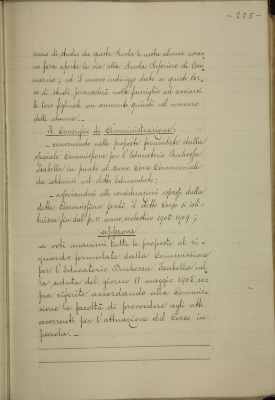 - 225 -
anno di studio da questa Scuola le nostre alunne avran
no forse aperta la via alla Scuola Superiore di Com
mercio; ed il nuovo indirizzo dato a questo Cor
so di studi permetterà molte famiglie ad inviarvi
le loro figliuole un aumento quindi nel numero
delle alunne. -
Il Consiglio di Amministrazione:
- convenendo nelle proposte formulate dalla
speciale Commissione per l'Educatorio Duchessa
Isabella in punto al nuovo Corso Commerciale
da istituirsi nel detto Educandato;
- associandosi alle considerazioni esposte dalla
detta Commissione perchè il detto Corso si isti-
tuisca fin dal p.v. anno scolastico 1908-1909;
approva
a voti unanimi tutte le proposte al ri-
guardo formulate dalla Commissione
per l'Educatorio Duchessa Isabella nel
la seduta del giorno 11 maggio 1908 so
pra riferite accordando alla Commis
sione la facoltà di provvedere agli atti
occorrenti per l'attuazione del Corso in
parola. -